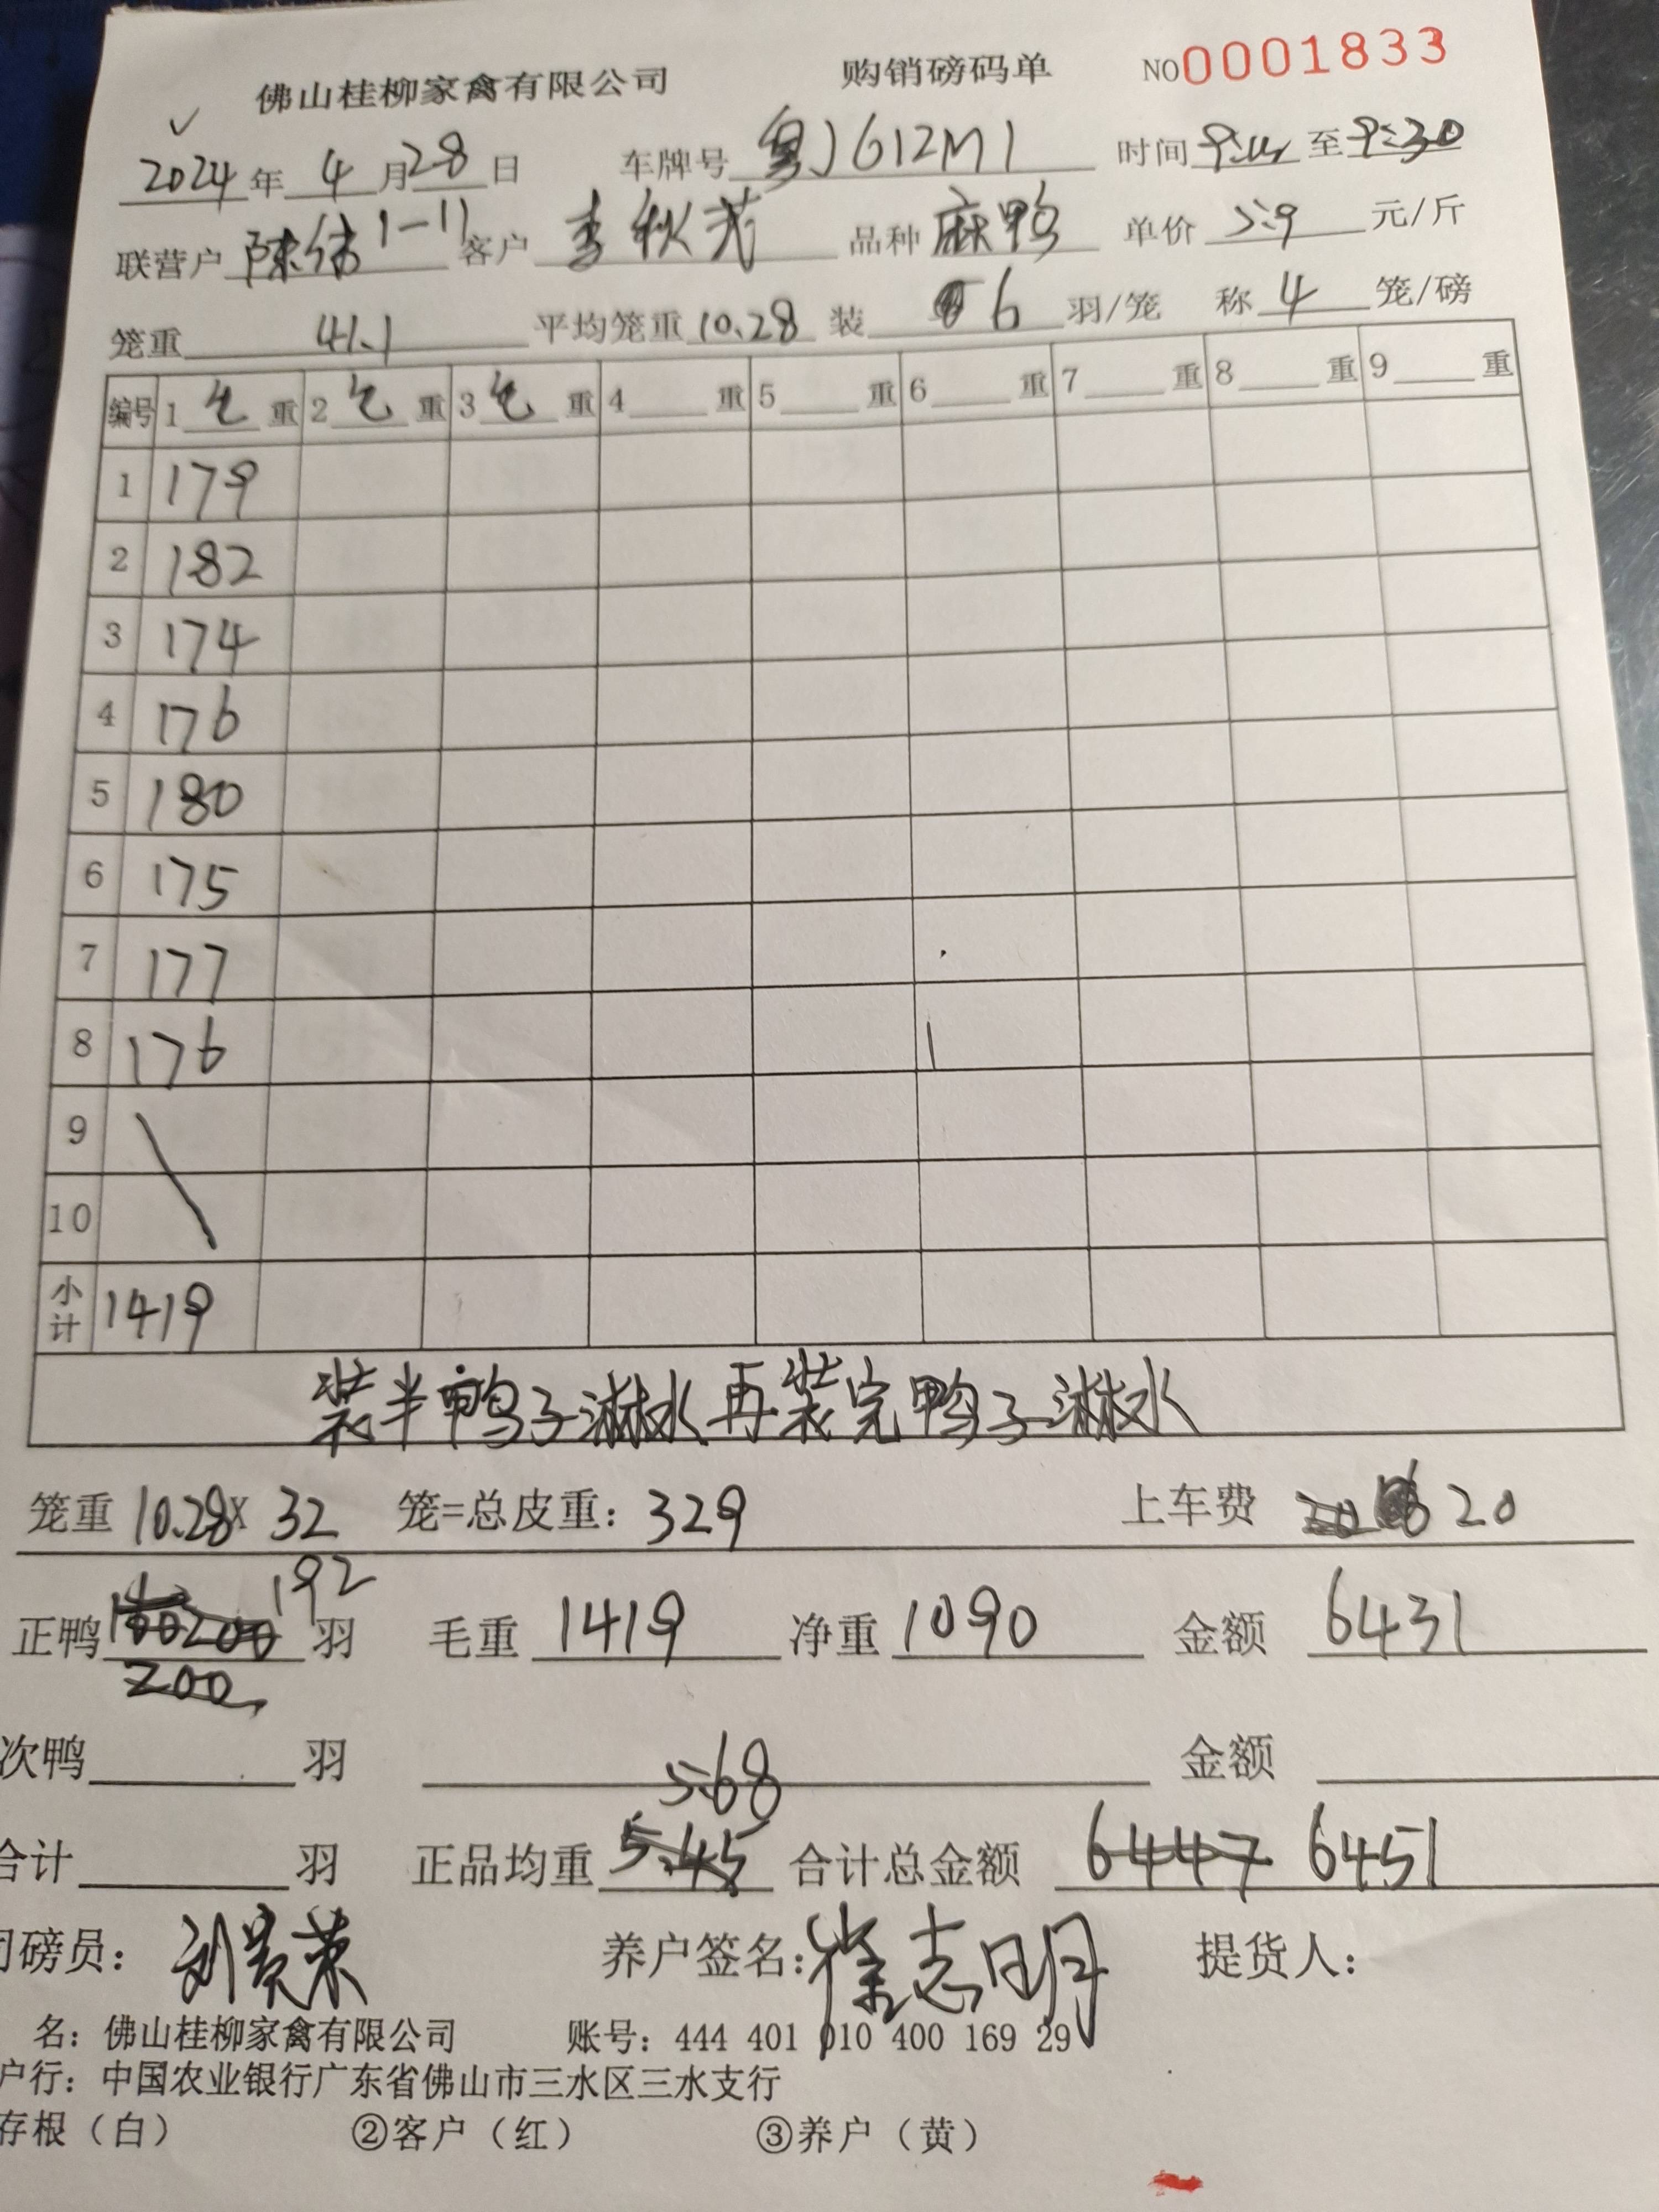 佛山桂柳家禽有限公司 购销磅码单 NO0001833
2024年4月28日 车牌号 粤JG12M1 时间 至9:30
联营户 陈伟1-11 客户 李秋芳 品种 麻鸭 单价 5.9 元/斤
笼重 41.1 平均笼重 10.28 装 6 羽/笼 称 4 笼/磅
编号 1 毛 重 2 毛 重 3 毛 重 4 重 5 重 6 重 7 重 8 重 9 重
1 179
2 182
3 174
4 176
5 180
6 175
7 177
8 176
9
10
小计 1419
装半鸭子淋水再装完鸭子淋水
笼重 10.28X 32 笼=总皮重: 329 上车费 20
正鸭 192 羽 毛重 1419 净重 1090 金额 6431
200
次鸭 羽 金额
5.68
合计 羽 正品均重 5.45 合计总金额 6447 6451
磅员: 刘贵荣 养户签名: 徐志明 提货人:
名: 佛山桂柳家禽有限公司 账号: 444 401 010 400 169 29
户行: 中国农业银行广东省佛山市三水区三水支行
存根(白) ②客户(红) ③养户(黄)